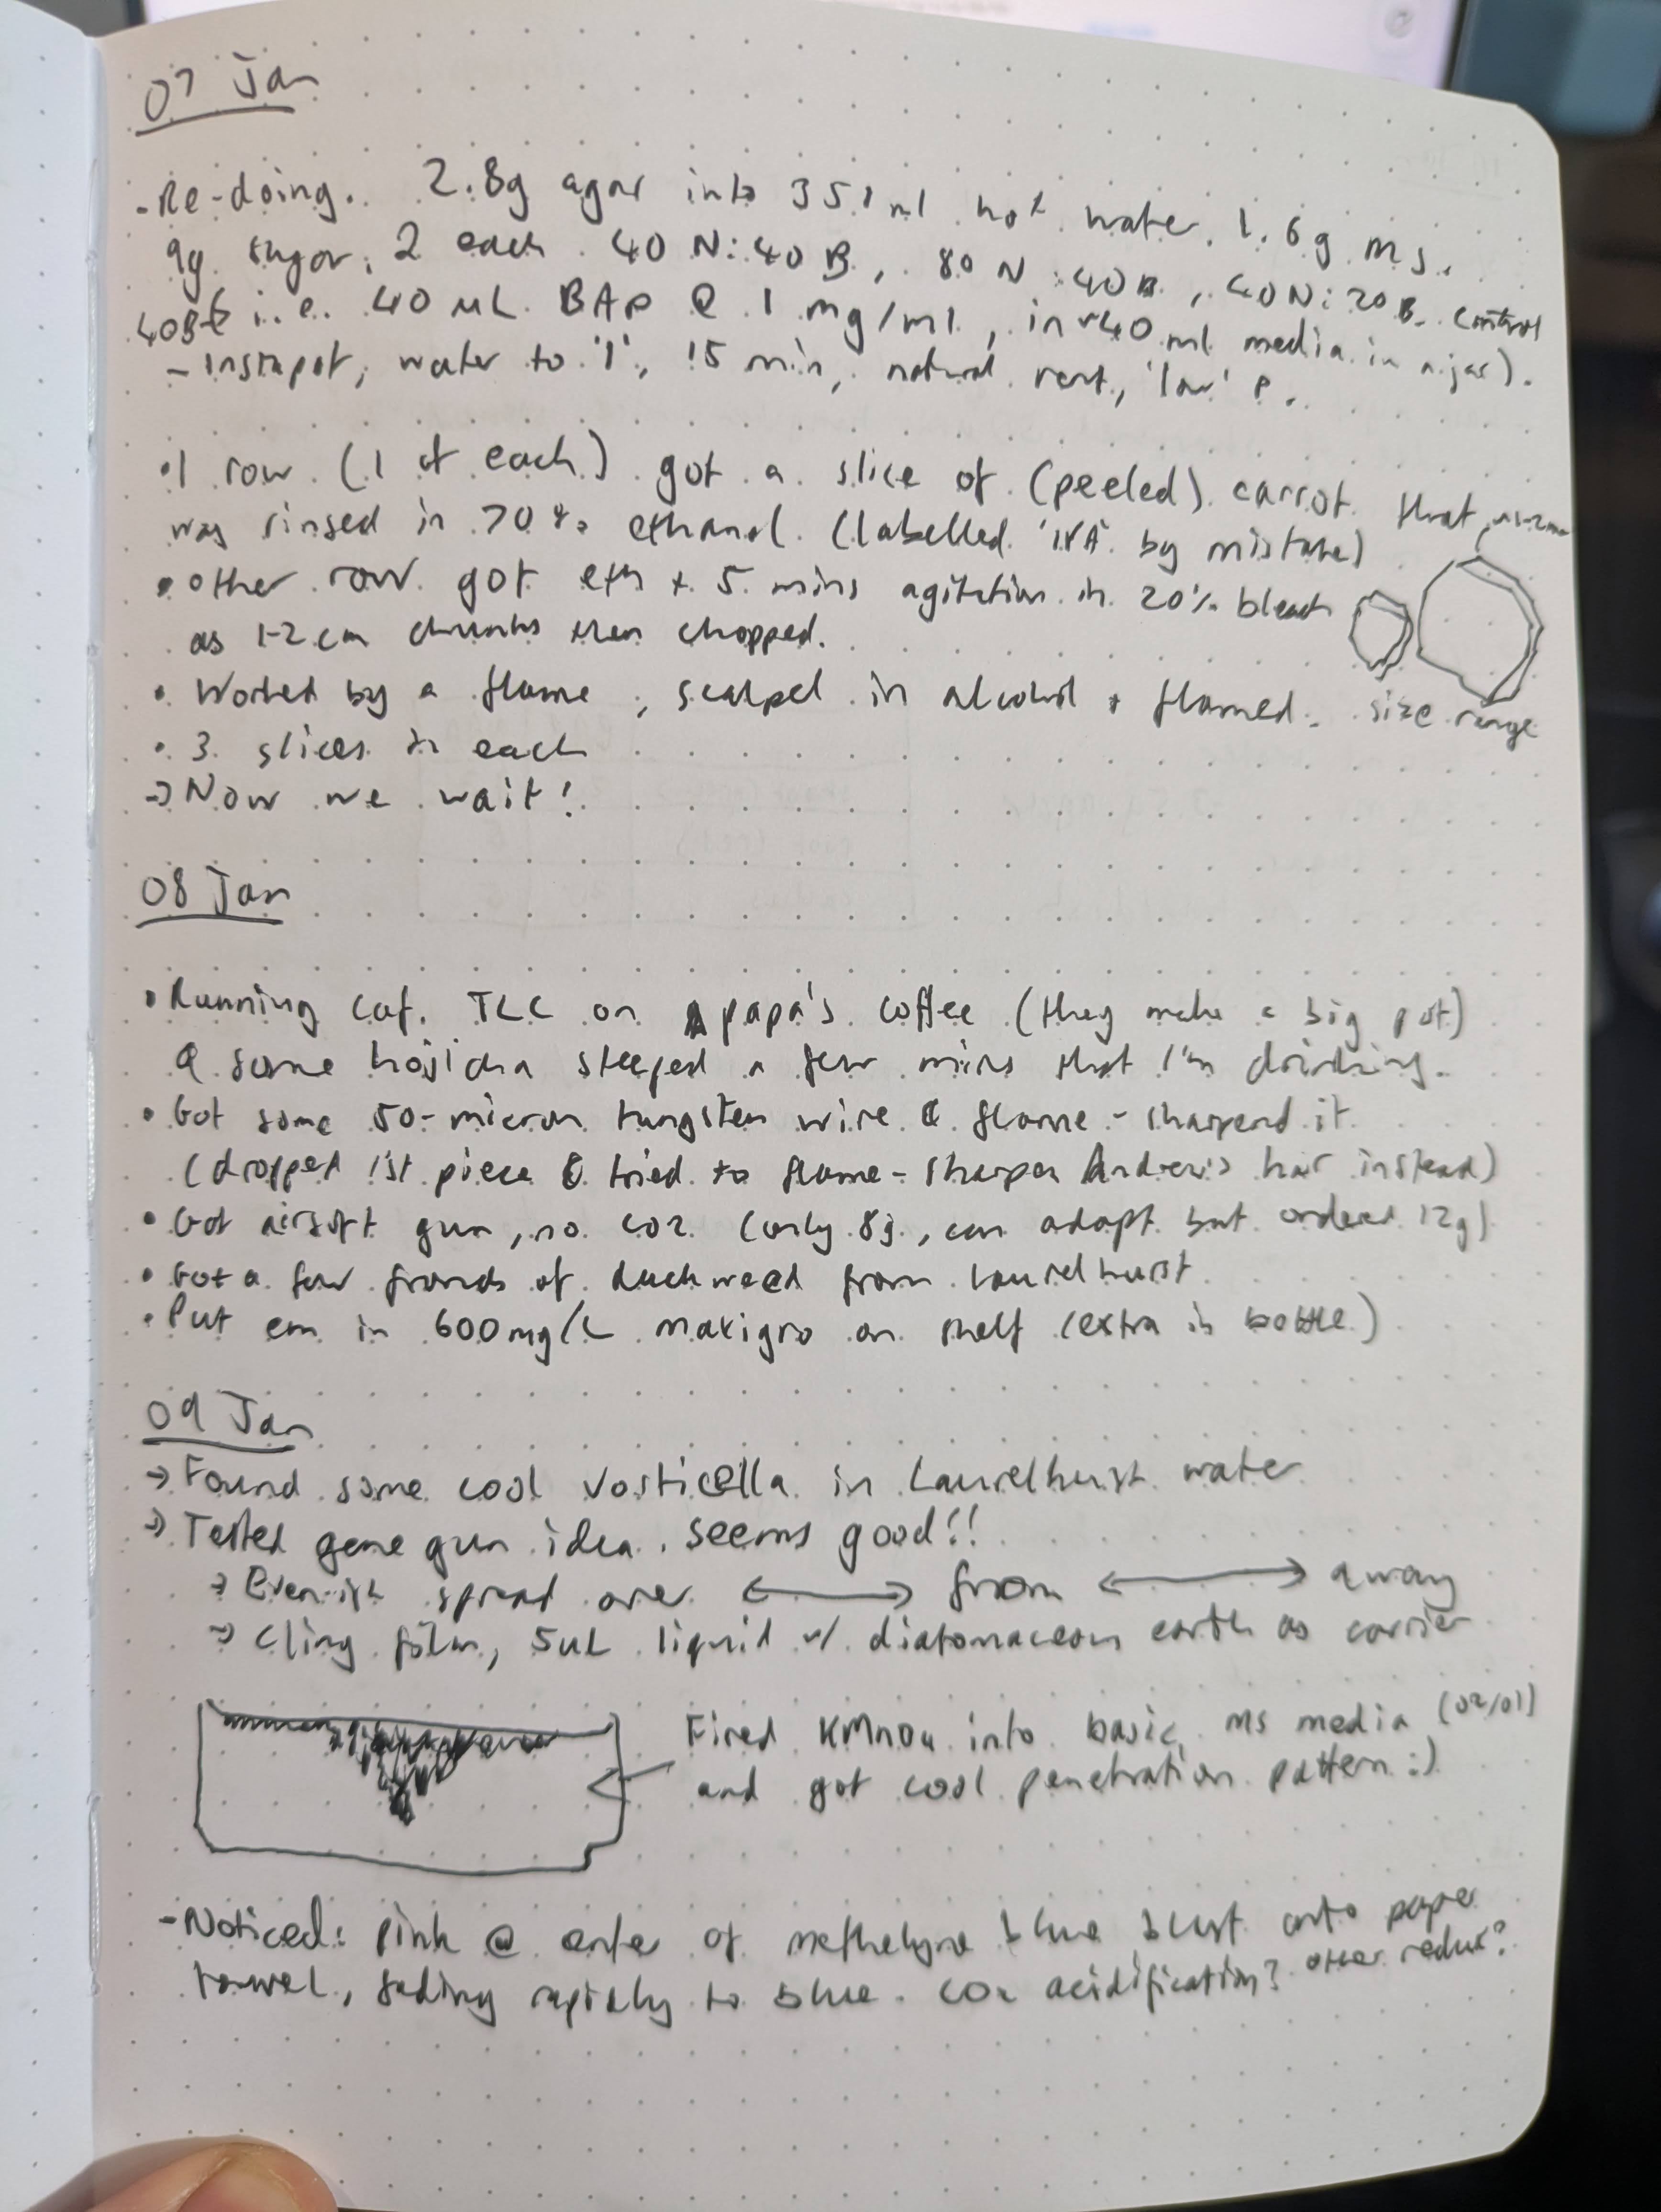 07 Jan
- Re-doing. 2.8g agar into 351ml hot water. 1.6g MS.
9g sugar. 2 each 40N:40B, 80N:40B, 40N:20B. control
40B i.e. 40 uL BAP @ 1 mg/ml, in ~40 ml media in a jar).
- Instapot, water to '1', 15 min, natural vent, 'low' P.
• 1 row (1 of each) got a slice of (peeled) carrot that
was rinsed in 70% ethanol (labelled 'IPA' by mistake)
• other row got eth + 5 mins agitation in 20% bleach
as 1-2cm chunks then chopped.
• Worked by a flame, scalpel in alcohol + flamed.
size range
• 3 slices in each
→ Now we wait!
08 Jan
• Running caf. TLC on papa's coffee (they make a big pot)
& some hojicha steeped a few mins that I'm drinking.
• Got some 50-micron tungsten wire & flame-sharpend it
(dropped 1st piece & tried to flame-sharpen Andrew's hair instead)
• Got airsoft gun, no CO2 (only 8g, can adapt but ordered 12g)
• Got a few fronds of duckweed from Laurelhurst
• Put em in 600mg/L maxigro on shelf (extra in bottle)
09 Jan
→ Found some cool Vorticella in Laurelhurst water
→ Tested gene gun idea. Seems good!!
→ Even-ish spread over ⟷ from ⟷ away
→ Cling film, 5uL liquid w/ diatomaceous earth as carrier
Fired KMnO4 into basic MS media (02/01)
and got cool penetration pattern :)
- Noticed: pink @ center of methelyne blue blast onto pape
towel, fading rapidly to blue. CO2 acidification? other redux?